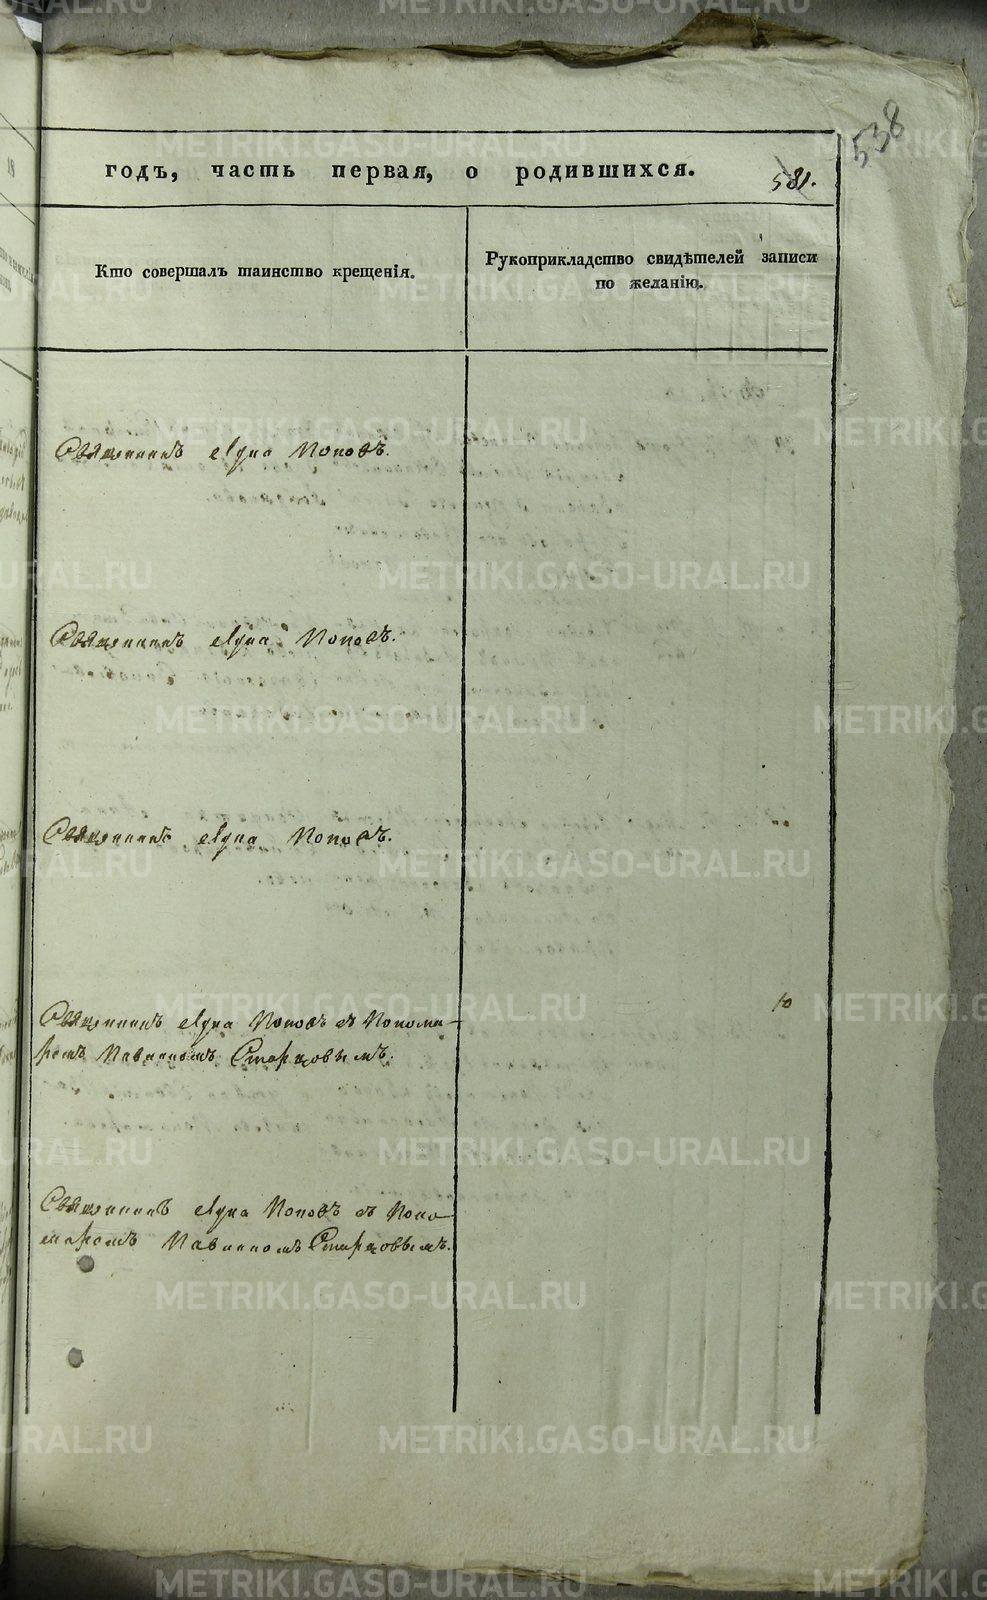 538
годъ, часть первая, о родившихся.
581.
Кто совершалъ таинство крещенія.
Рукоприкладство свидѣтелей записи
по желанію.
Священникъ Лука Поповъ.
Священникъ Лука Поповъ.
Священникъ Лука Поповъ.
Священникъ Лука Поповъ съ Понома-
ремъ Старцовымъ.
10
Священникъ Лука Поповъ съ Поно-
маремъ Старцовымъ.
METRIKI.GASO-URAL.RU